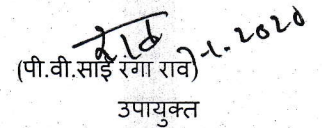 7-1-2020
(पी.वी.साई रंगा राव)
उपायुक्त